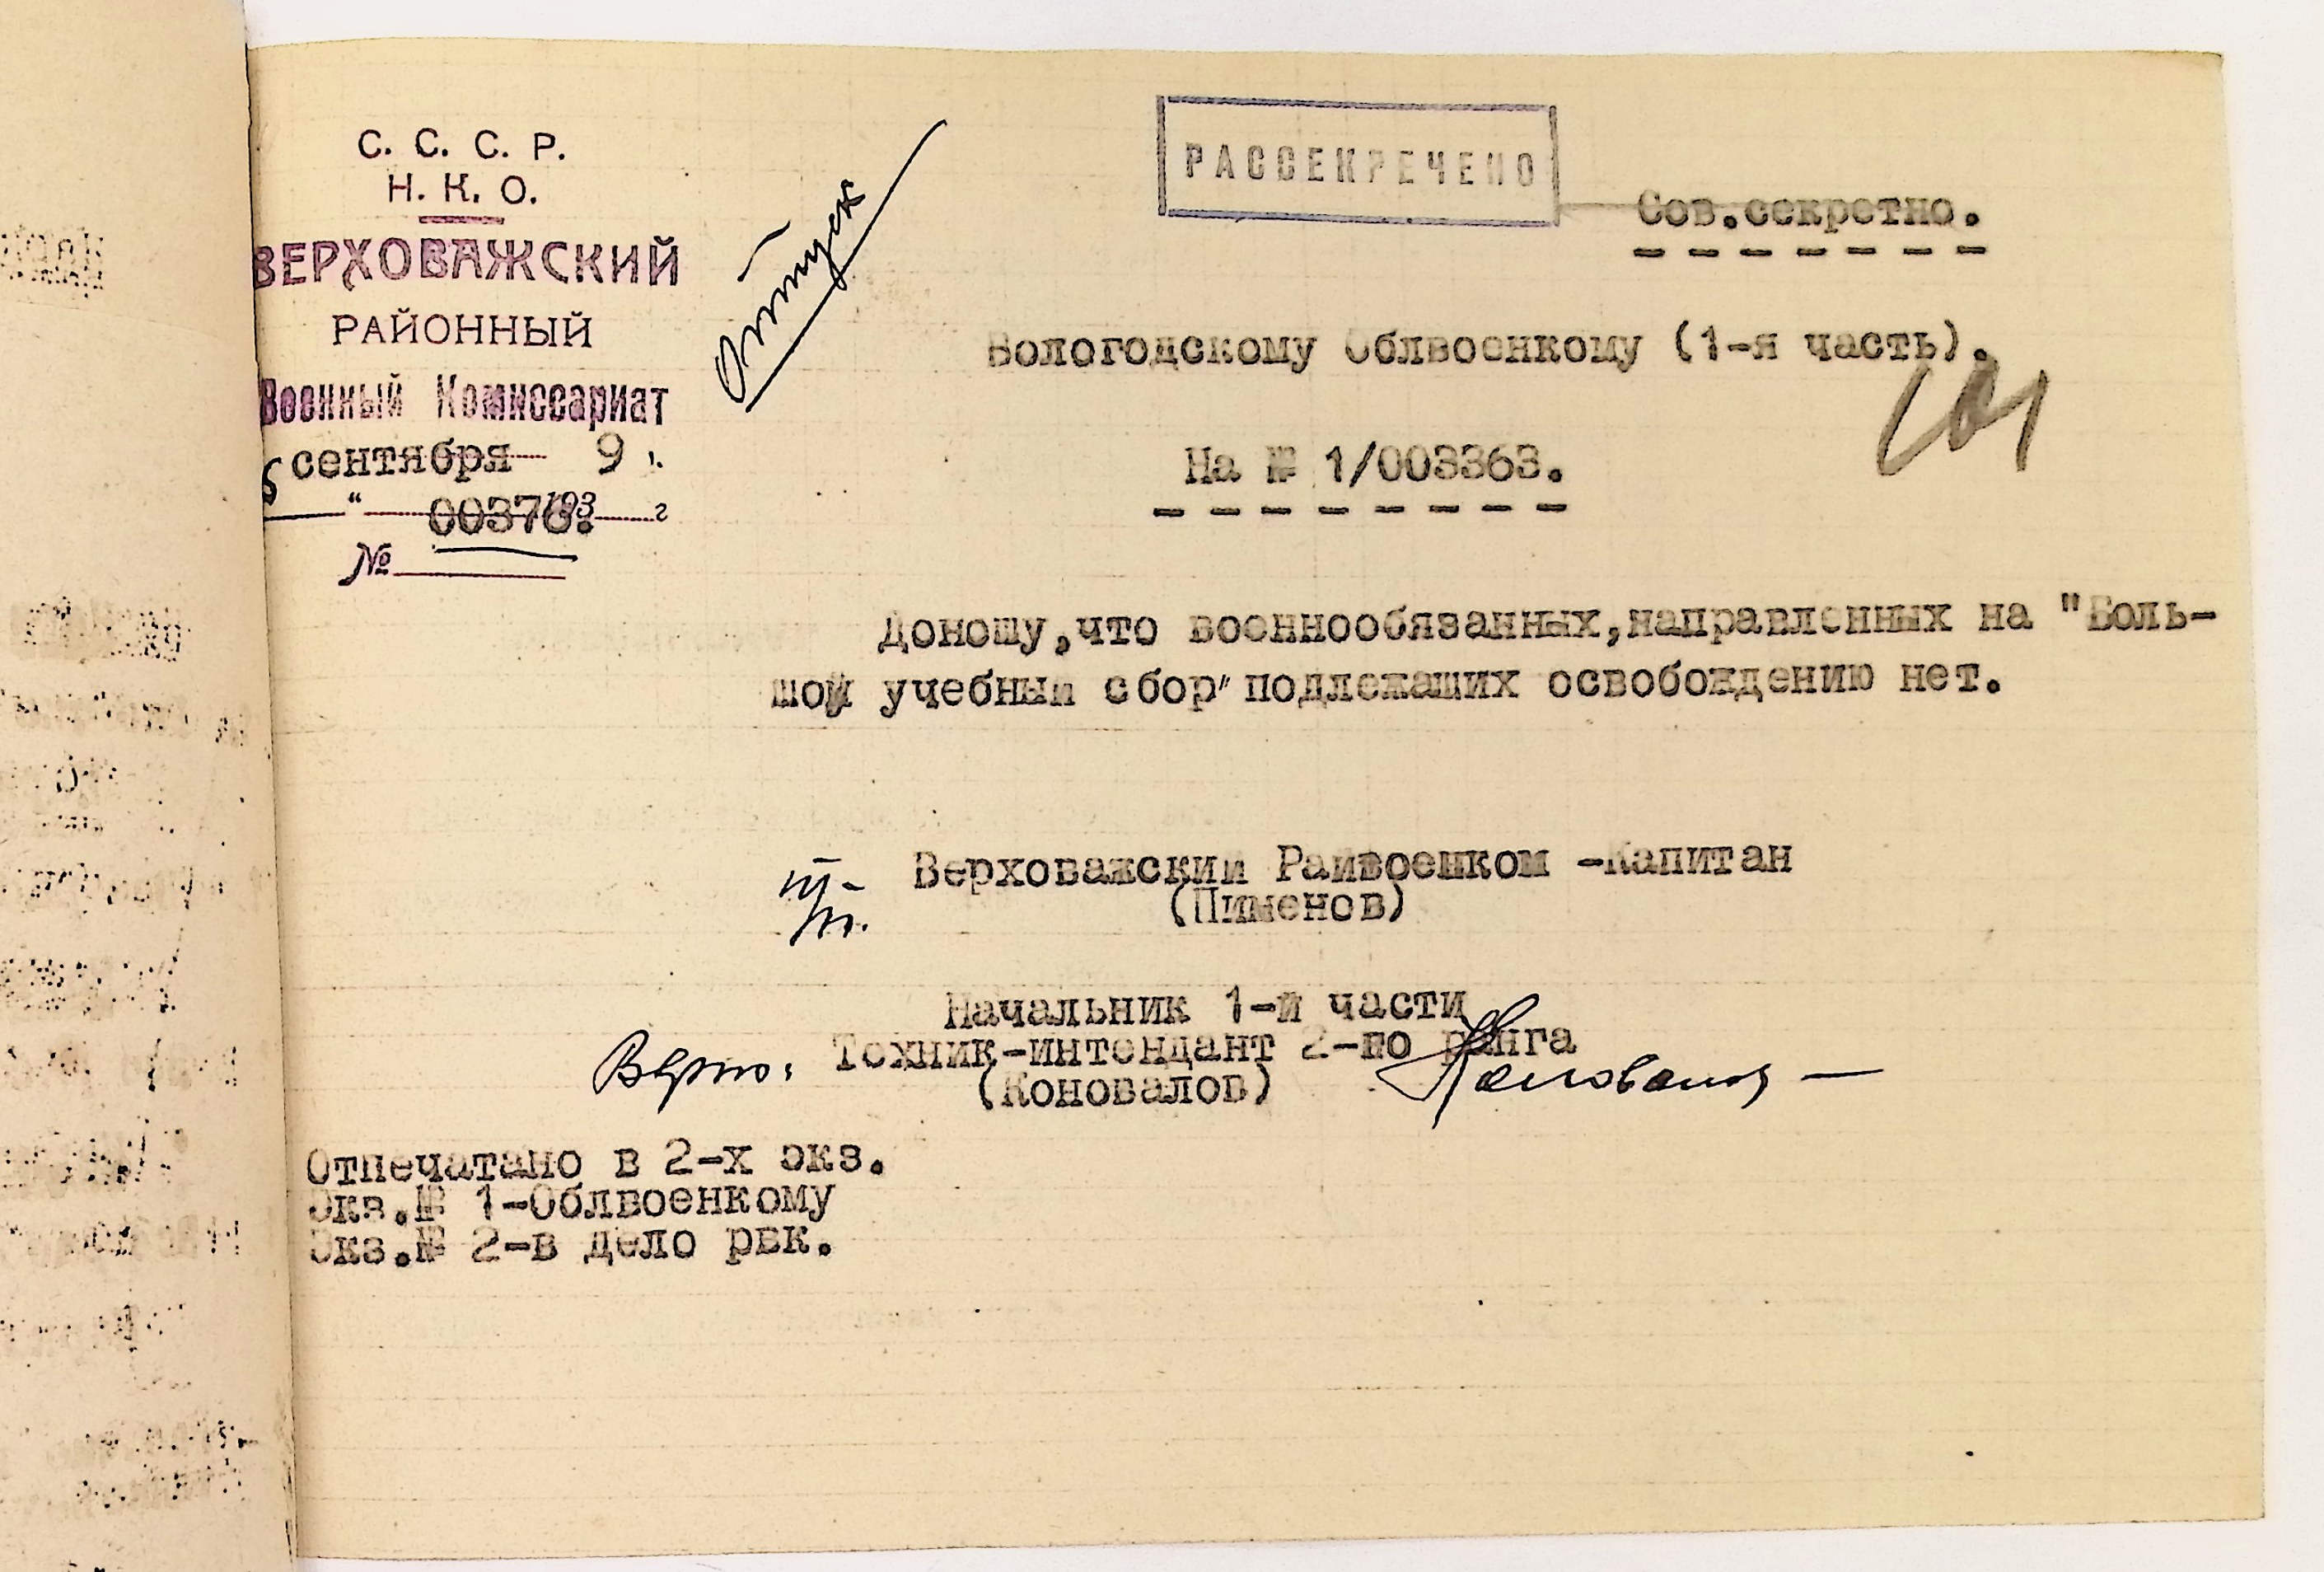 С. С. С. Р.
Н. К. О.
ВЕРХОВАЖСКИЙ
РАЙОННЫЙ
Военный Комиссариат
6 сентября 9 г.
" 193 г
00376.
№
Отпуск
РАССЕКРЕЧЕНО
Сов.секретно.
Вологодскому Облвоенкому (1-я часть).
На № 1/003363.
Доношу,что военнообязанных,направленных на "Боль-
шой учебный сбор" подлежащих освобождению нет.
Верховажский Райвоенком -Капитан
(Пименов)
Начальник 1-й части
Верно: Техник-интендант 2-го ранга
(Коновалов) Коновалов
Отпечатано в 2-х экз.
Экз.№ 1-Облвоенкому
Экз.№ 2-в дело рвк.